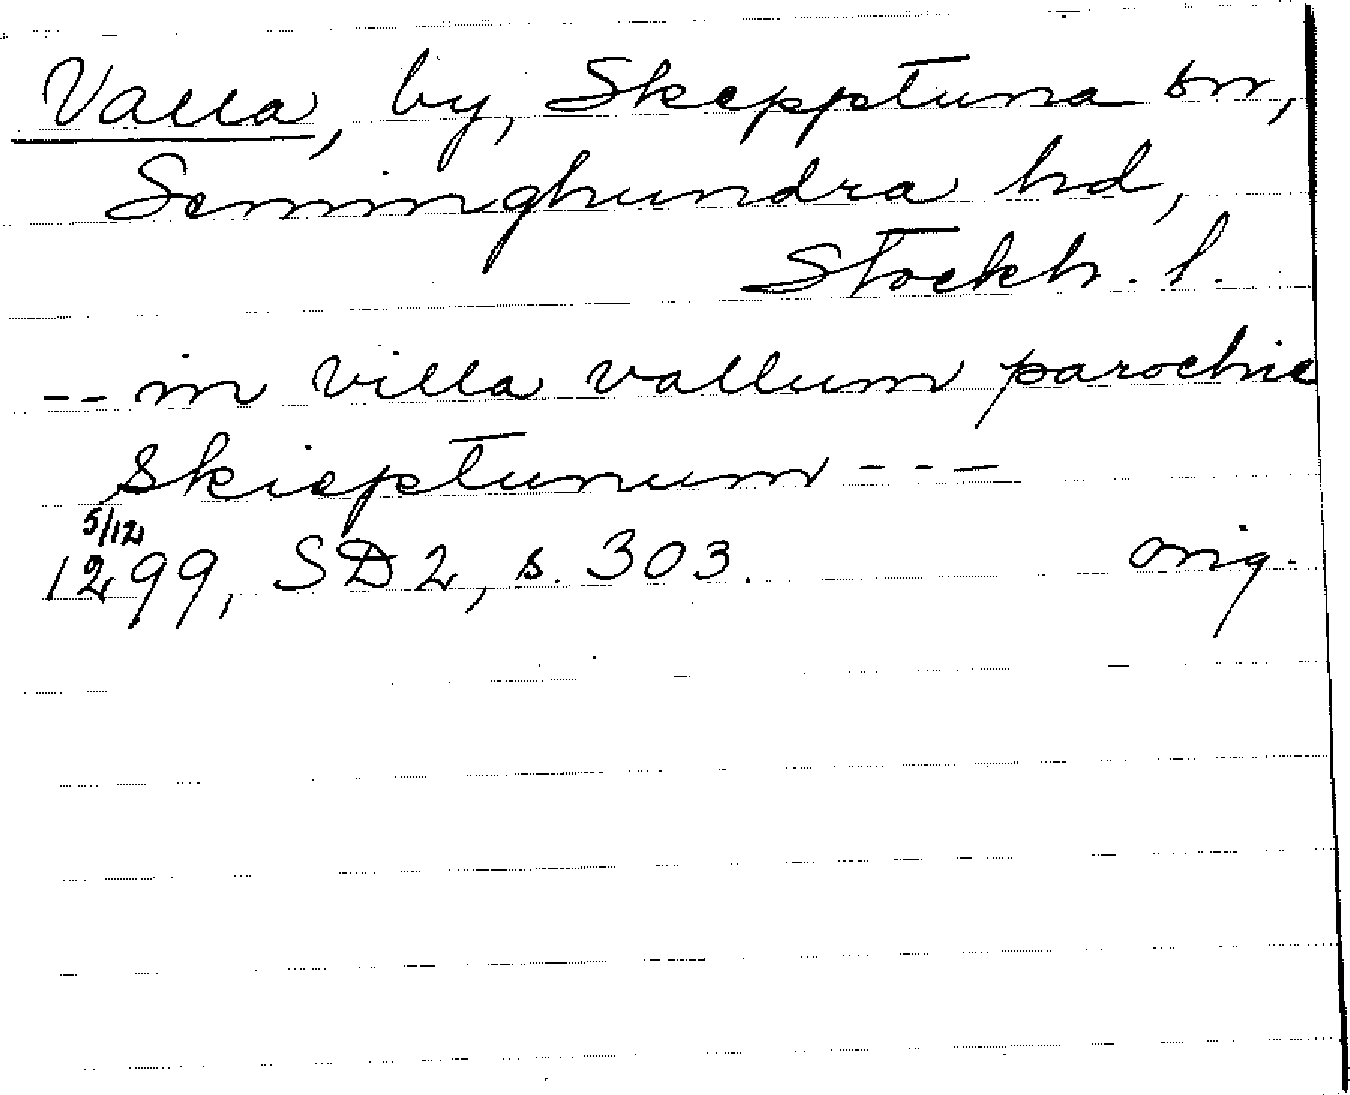 Valla, by, Skepptuna sn,
Seminghundra hd,
Stockh. l.
-- in villa vallum parochie
Skieptunum ---
5/12
1299, SD 2, s. 303. orig.